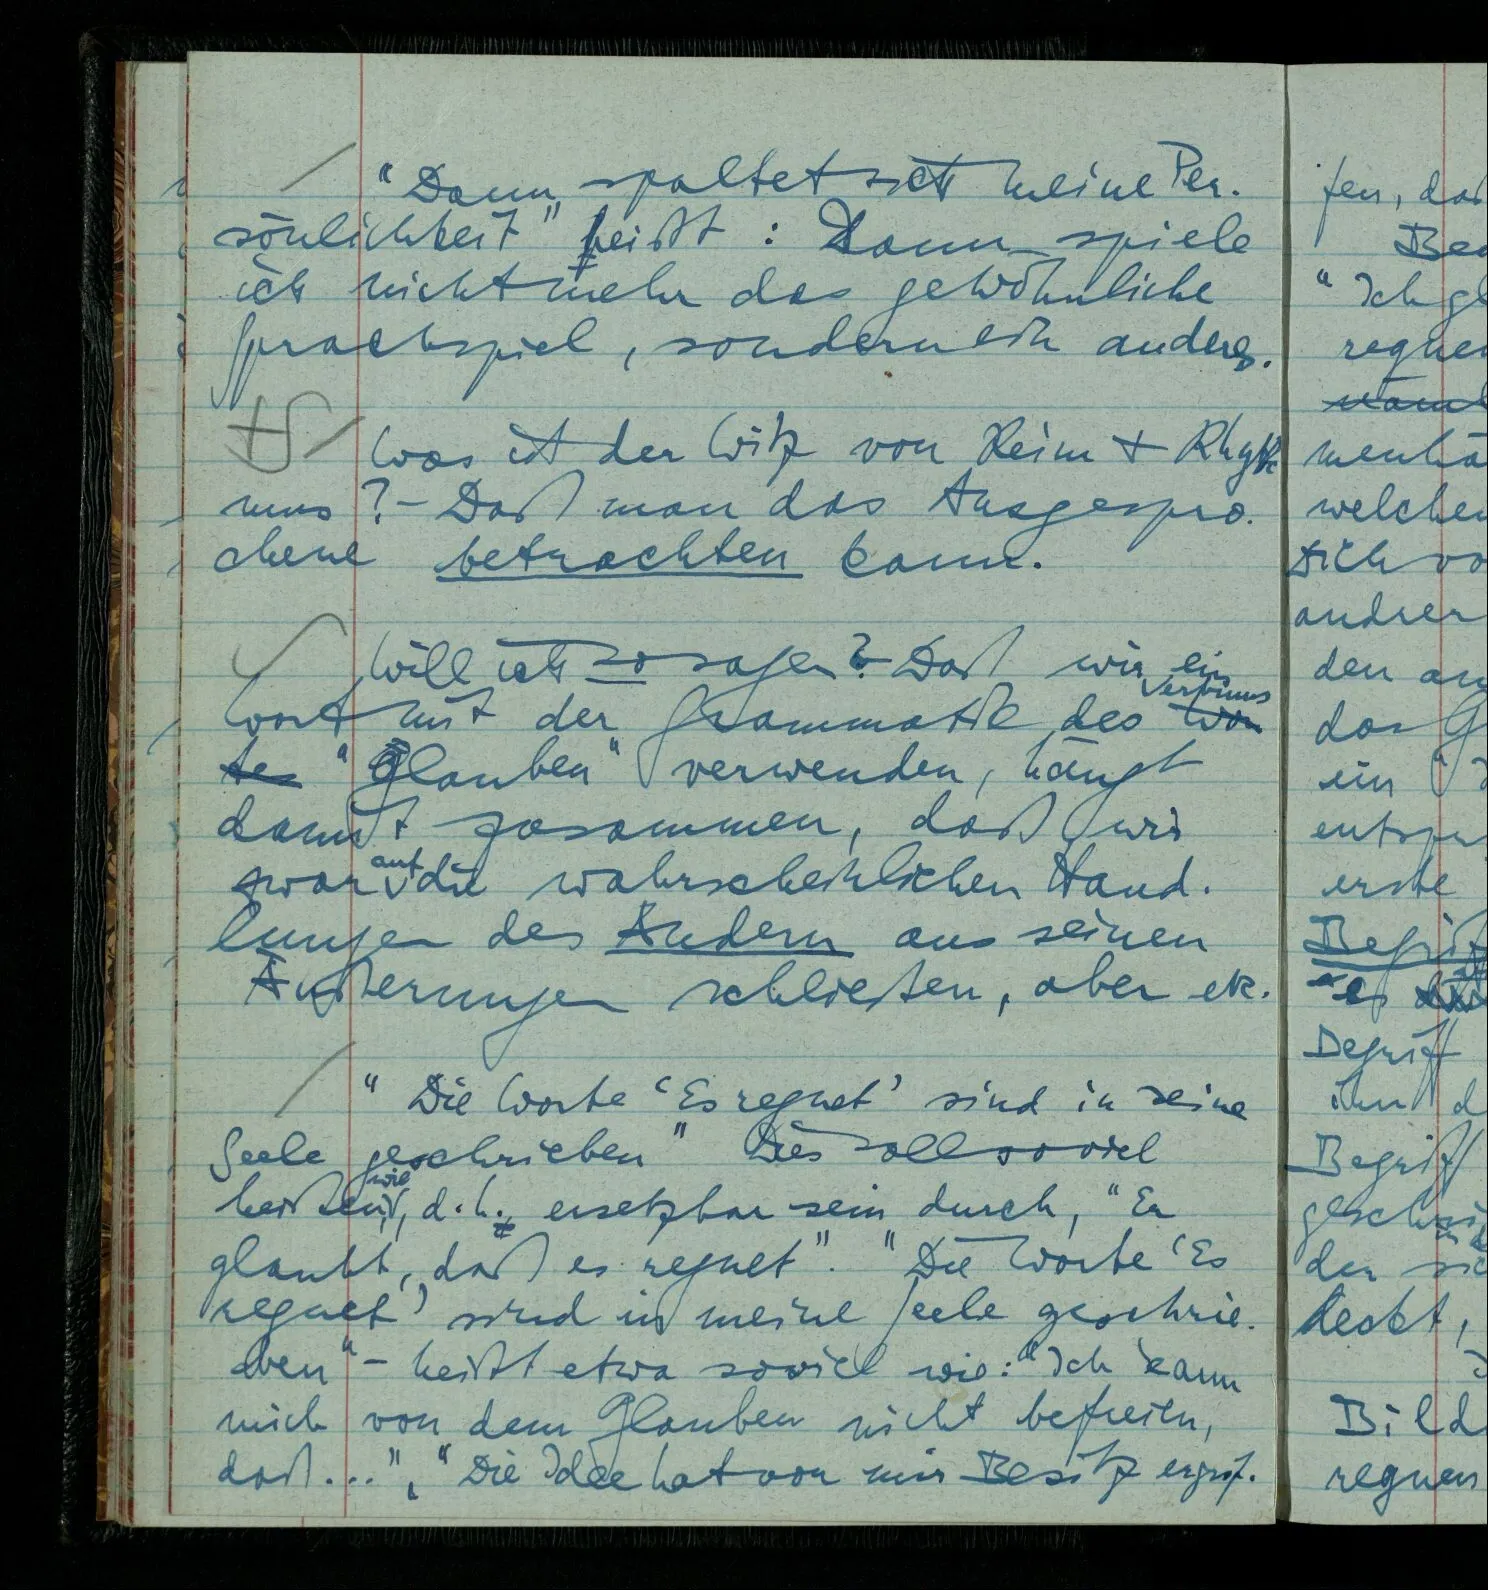 "Dann spaltet sich meine Per-
sönlichkeit" heißt: Dann spiele
ich nicht mehr das gewöhnliche
Sprachspiel, sondern ein anderes.
Was ist der Witz von Reim + Rhyth
mus? – Daß man das Ausgespro-
chene betrachten kann.
Will ich so sagen? – Daß wir ein
Wort mit der Grammatik des Verbums
"Glauben" verwenden, hängt
damit zusammen, daß wir
zwar auf die wahrscheinlichen Hand-
lungen des Andern aus seinen
Äußerungen schließen, aber etc.
"Die Worte 'Es regnet' sind in seine
Seele geschrieben" Dies soll soviel
heißen wie, d.h., ersetzbar sein durch, "Er
glaubt, daß es regnet". "Die Worte 'Es
regnet' sind in meine Seele geschrie-
ben" – heißt etwa soviel wie: "Ich kann
mich von dem Glauben nicht befreien,
daß...", "Die Idee hat von mir Besitz ergrif-
fen, daß
"Ich
regnen
welchen
sich
den
das
ein
erste
"es
Begriff
ihn
Begriff
der
deckt,
Bild
regnen